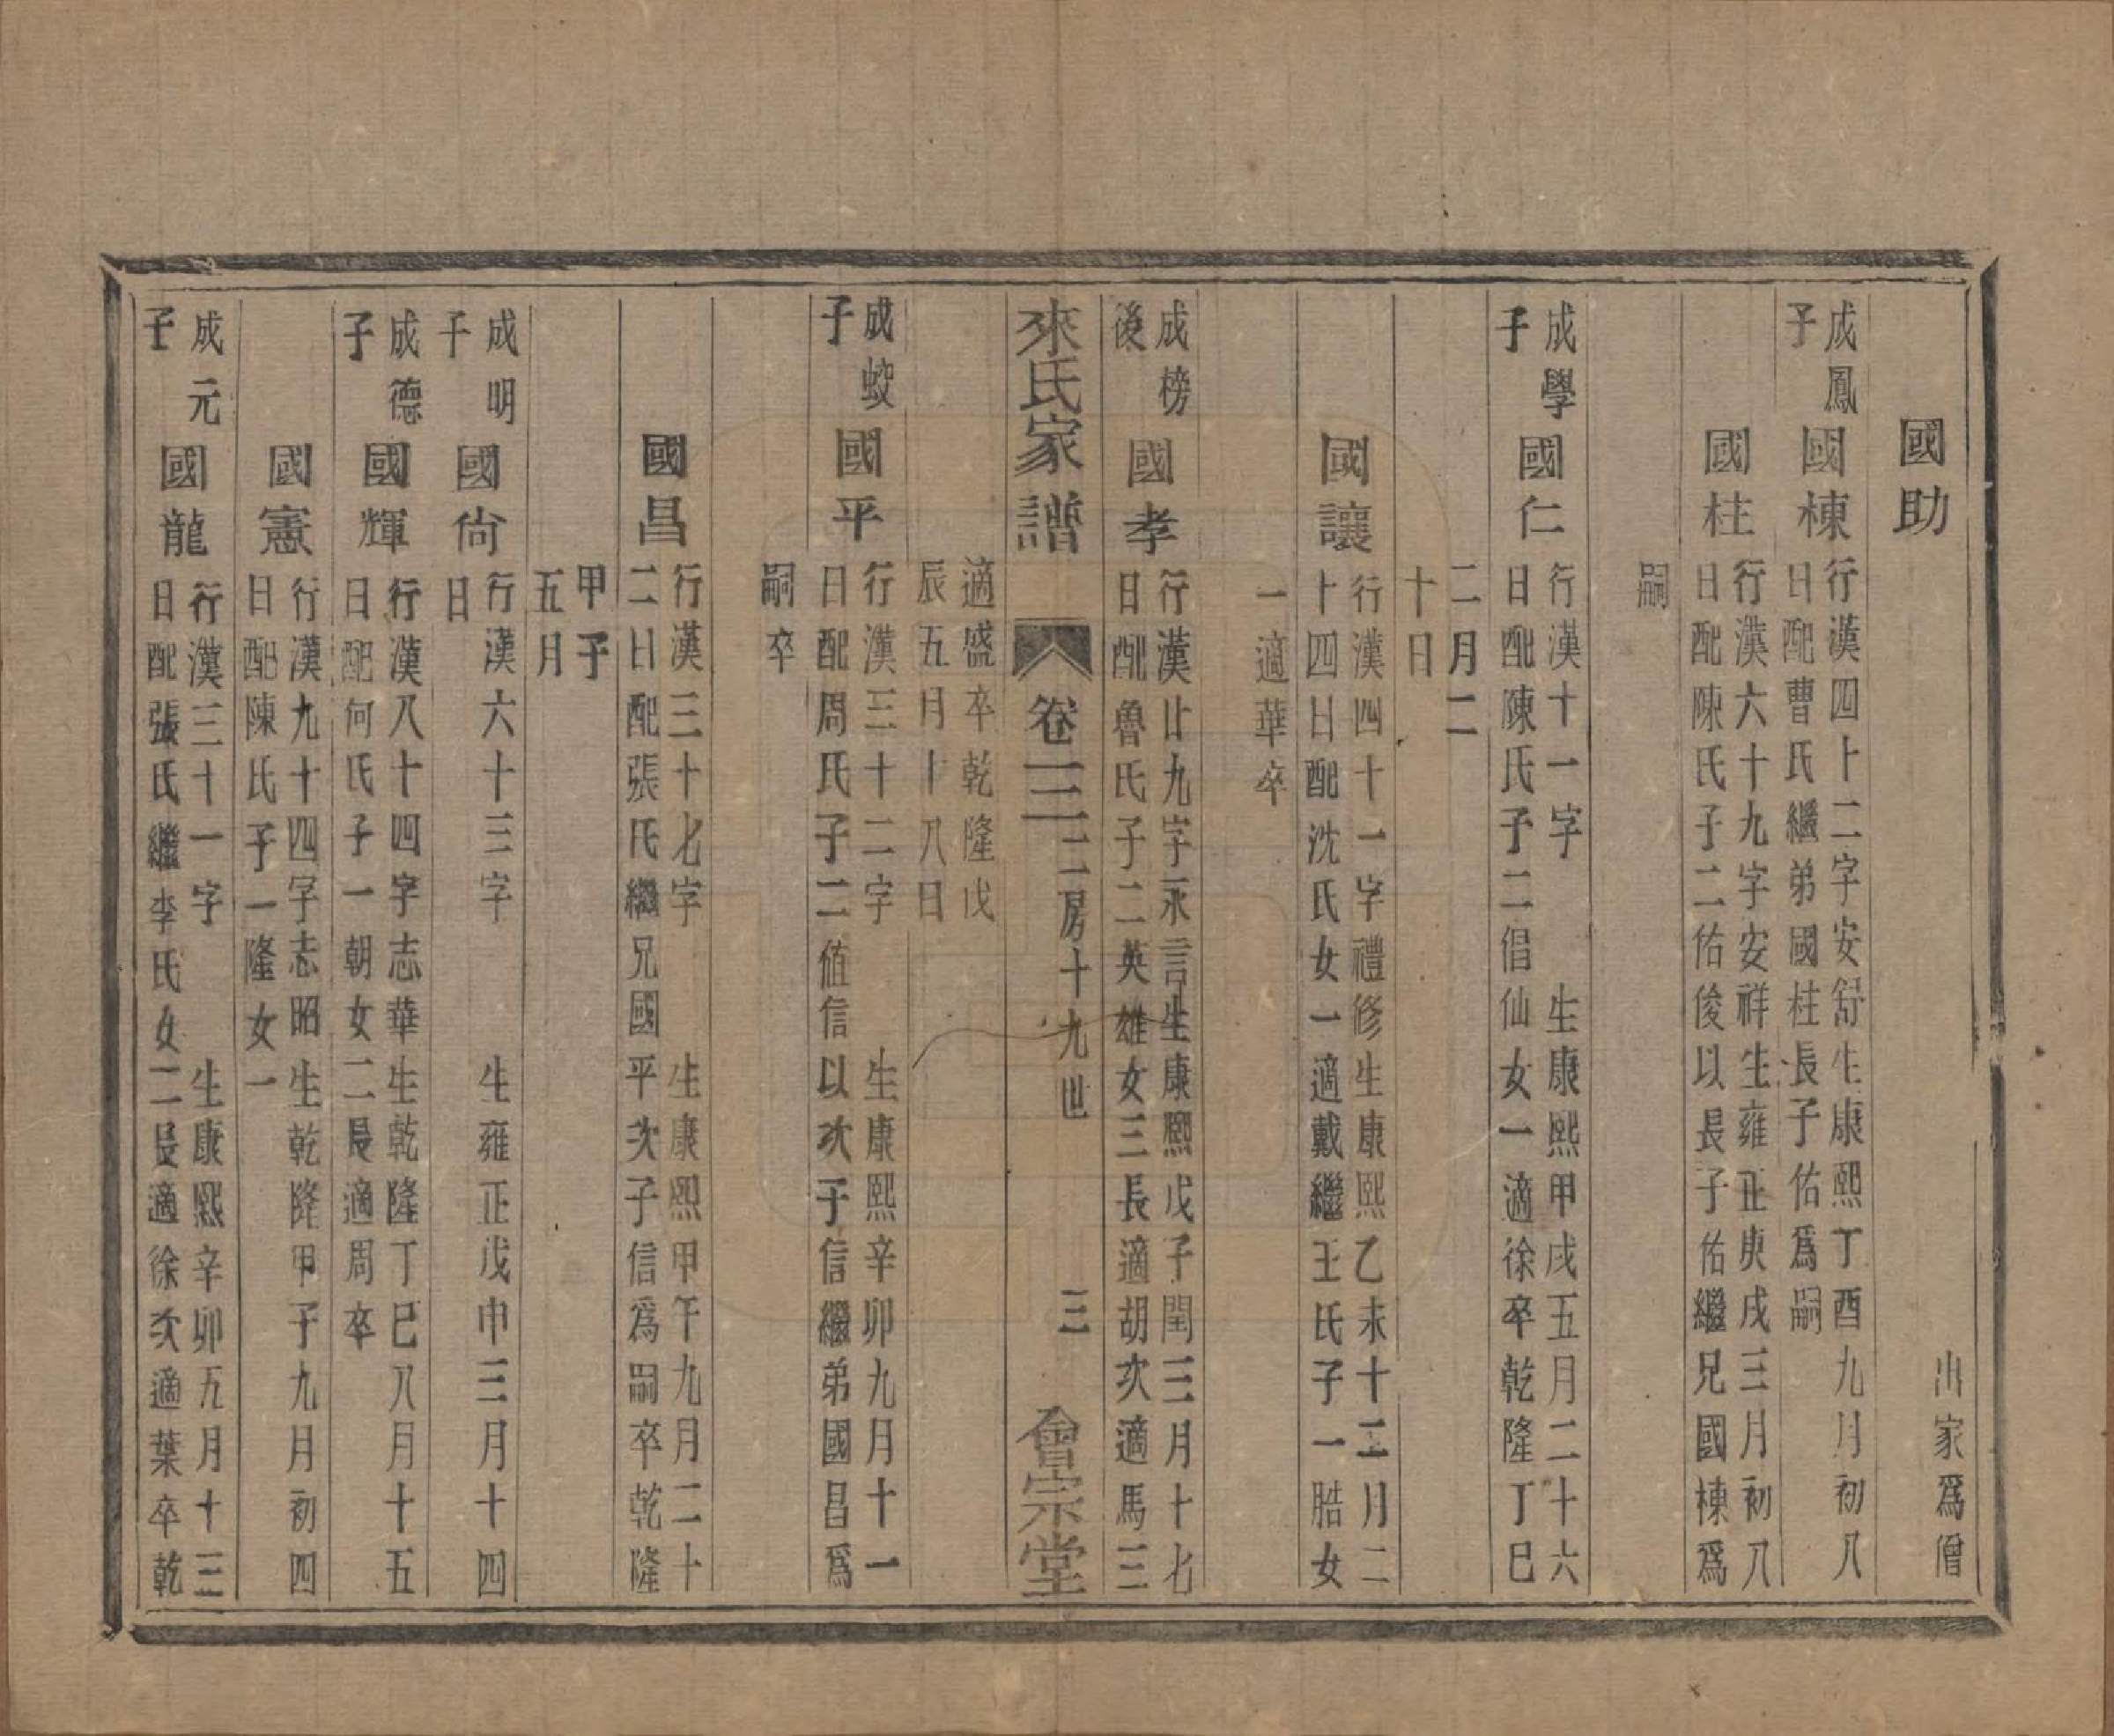 國助
出家爲僧
成鳳子
國棟
行漢四十二字安舒生康熙丁酉九月初八
日配曹氏繼弟國柱長子佑爲嗣
國柱
行漢六十九字安祥生雍正庚戌三月初八
日配陳氏子二佑俊以長子佑繼兄國棟爲
嗣
成學子
國仁
行漢十一字 生康熙甲戌五月二十六
日配陳氏子二倡仙女一適徐卒乾隆丁巳
二月二
十日
國讓
行漢四十一字禮修生康熙乙未十二月二
十四日配沈氏女一適戴繼王氏子一䧊女
一適華卒
成榜後
國孝
行漢廿九字永言生康熙戊子閏三月十七
日配魯氏子二英雄女三長適胡次適馬三
來氏家譜
卷三
二房十九世
三
會宗堂
適盛卒乾隆戊
辰五月十八日
成蛟子
國平
行漢三十二字 生康熙辛卯九月十一
日配周氏子二値信以次子信繼弟國昌爲
嗣卒
國昌
行漢三十七字 生康熙甲午九月二十
二日配張氏繼兄國平次子信爲嗣卒乾隆
甲子
五月
成明子
國尙
行漢六十三字 生雍正戊申三月十四
日
成德子
國輝
行漢八十四字志華生乾隆丁巳八月十五
日配何氏子一朝女二長適周卒
國憲
行漢九十四字志昭生乾隆甲子九月初四
日配陳氏子一隆女一
成元子
國龍
行漢三十一字 生康熙辛卯五月十三
日配張氏繼李氏女二長適徐次適葉卒乾